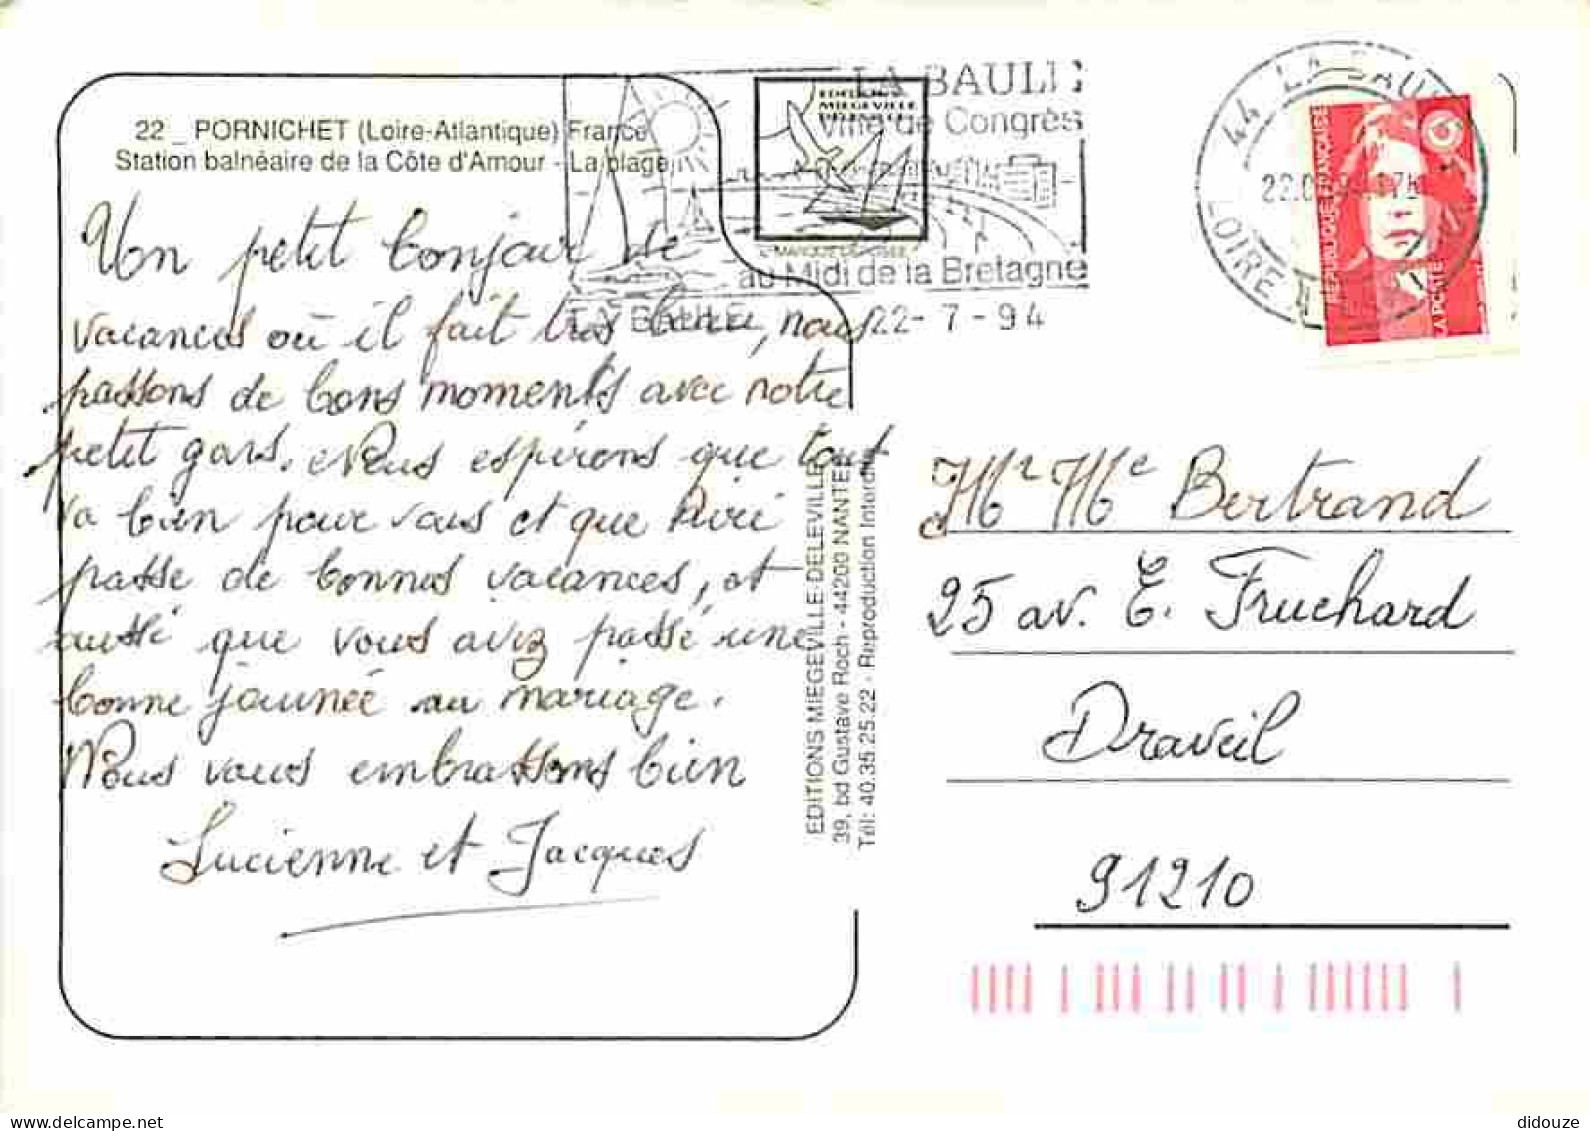 22 _ PORNICHET (Loire-Atlantique) France
Station balnéaire de la Côte d'Amour - La plage
Un petit bonjour de
vacances où il fait très beau, nous
passons de bons moments avec notre
petit gars. Nous espérons que tout
va bien pour vous et que
passe de bonnes vacances, et
aussi que vous avez passé une
bonne journée au mariage.
Nous vous embrassons bien
Lucienne et Jacques
EDITIONS MIEGEVILLE-DELEVILLE
39, bd Gustave Roch - 44200 NANTES
Tél: 40.35.25.22 - Reproduction Interdite
EDITIONS
MIEGEVILLE
MARQUE DEPOSEE
LA BAULE
Ville de Congrès
au Midi de la Bretagne
LA BAULE
22-7-94
44 LA BAULE
LOIRE
REPUBLIQUE FRANÇAISE
LA POSTE
Mr Me Bertrand
25 av. E. Fruchard
Draveil
91210
didouze